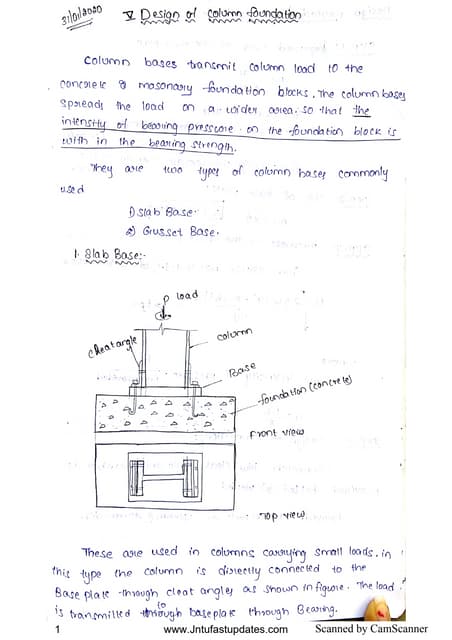 31/01/2020
V Design of column foundation
Column bases transmit column load to the
concrete & masonary foundation blocks. The column bases
Spreads the load on a wider area so that the
intensity of bearing pressure on the foundation block is
with in the bearing strength.
They are two types of column bases commonly
used
1) Slab Base.
2) Grusset Base.
1. Slab Base:-
P load
cleat angle
column
Base
foundation (concrete)
Front view
Top view
These are used in columns carrying small loads. in
this type the column is directly connected to the
Base plate through cleat angles as shown in figure. The load
is transmitted to baseplate through Bearing.
1
www.Jntufastupdates.com
Scanned by CamScanner